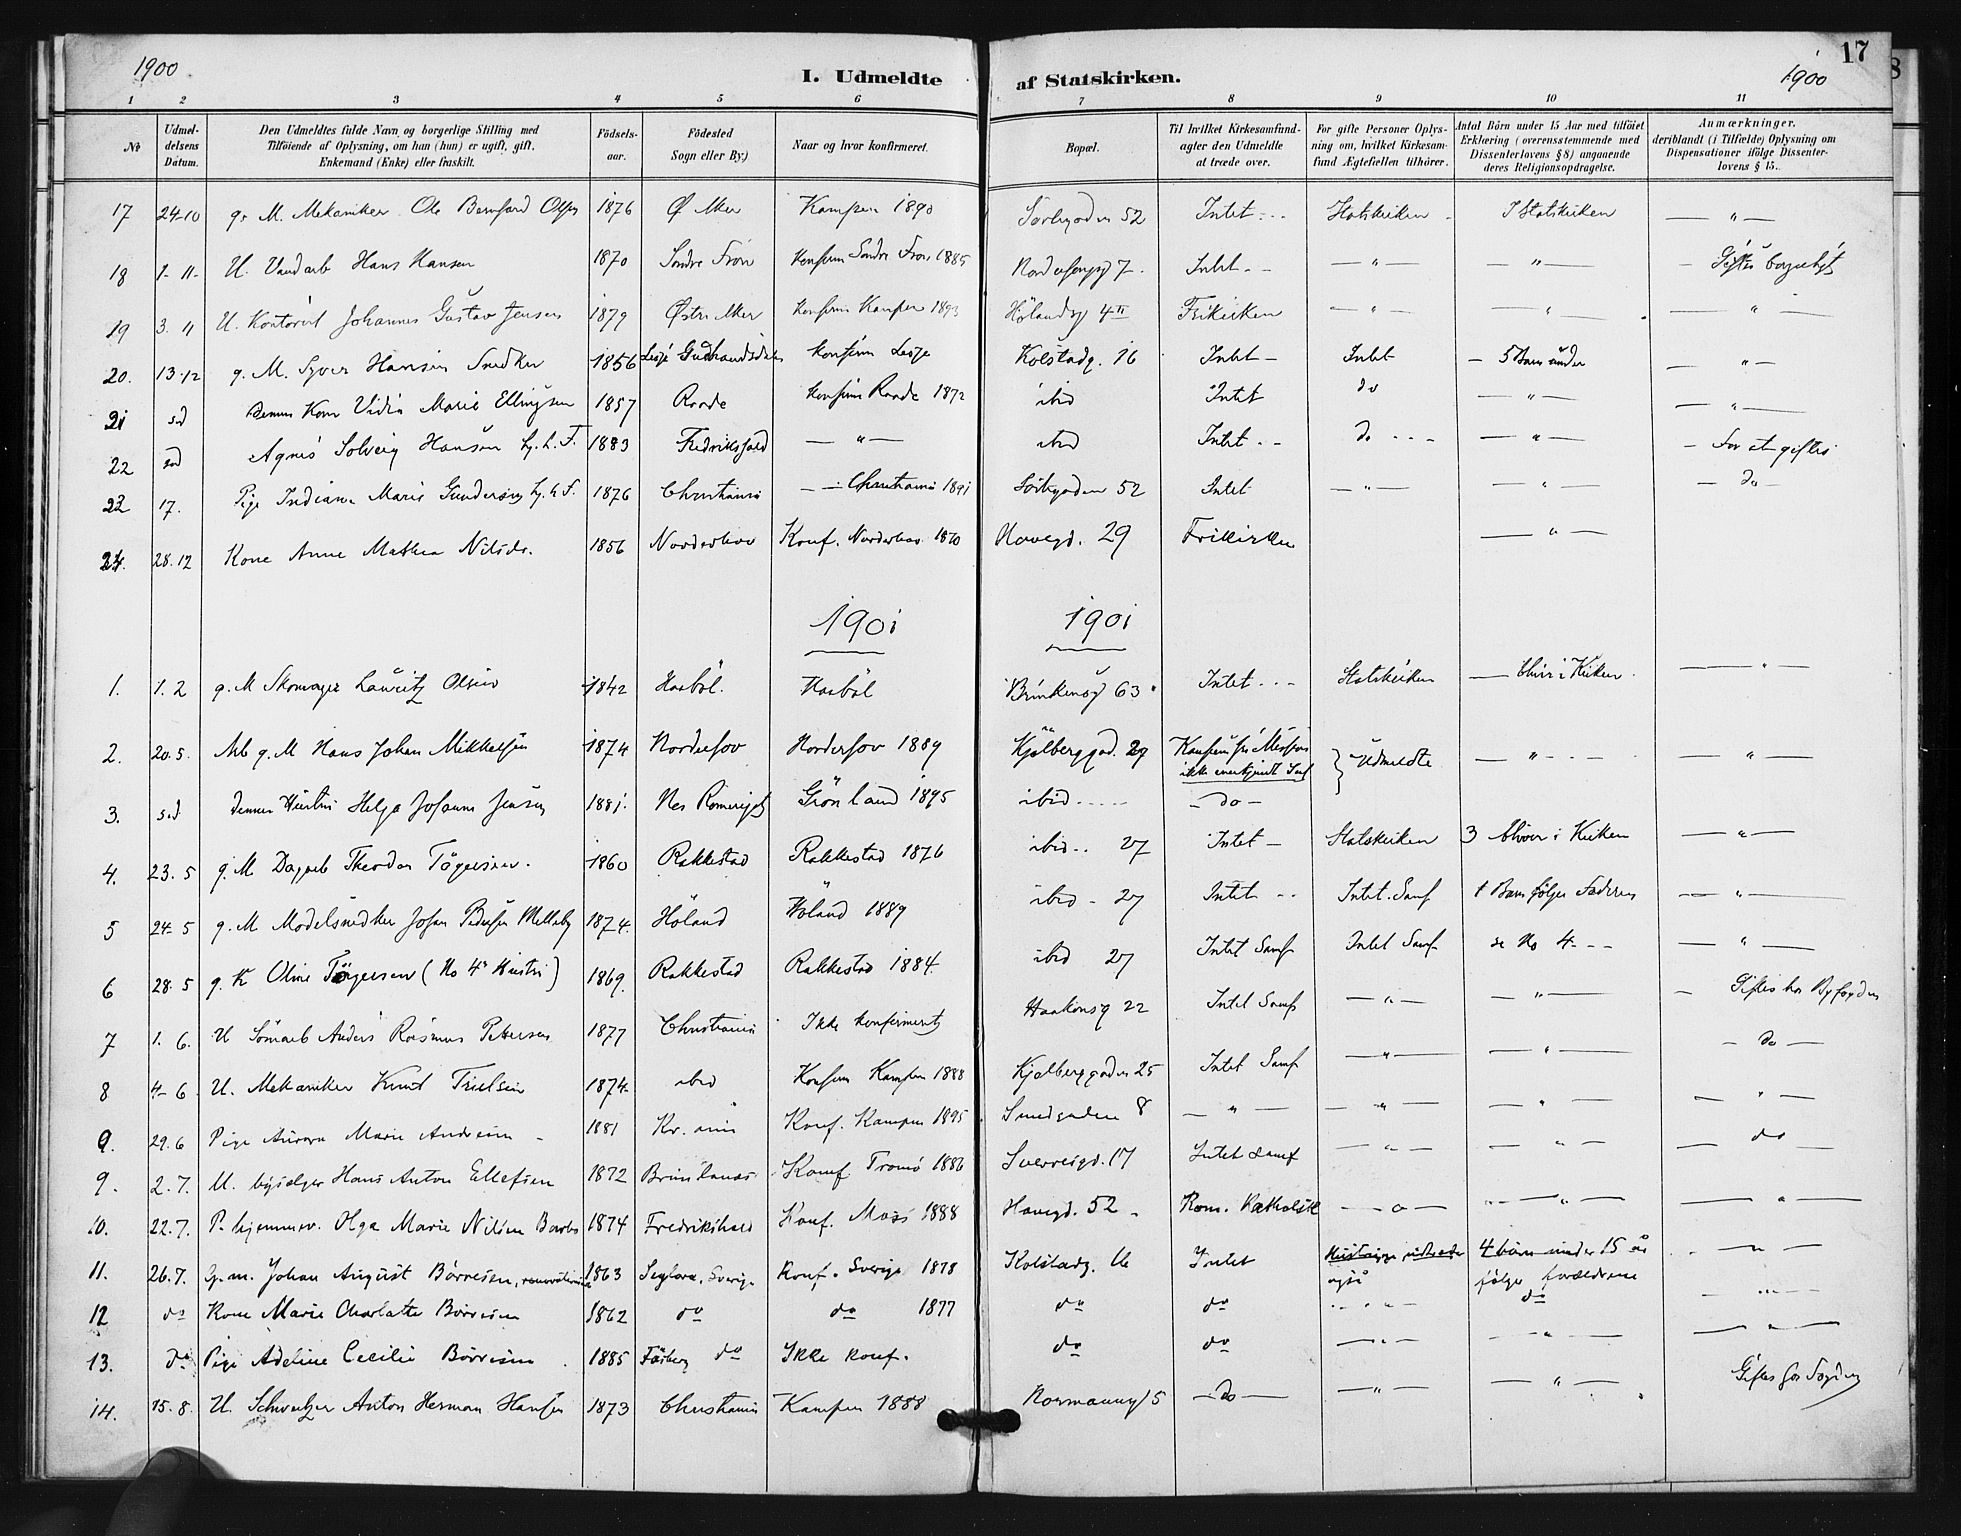 1900
I. Udmeldte af Statskirken.
17
1900
1 2 3 4 5 6 7 8 9 10 11
No
Udmel-
delsens
Datum.
Den Udmeldtes fulde Navn og borgerlige Stilling med
Tilføiende af Oplysning, om han (hun) er ugift, gift,
Enkemand (Enke) eller fraskilt.
Fødsels-
aar.
Fødested
Sogn eller By.)
Naar og hvor konfirmeret.
Bopæl.
Til hvilket Kirkesamfund
agter den Udmeldte
at træde over.
For gifte Personer Oplys-
ning om, hvilket Kirkesam-
fund Ægtefællen tilhører.
Antal Børn under 15 Aar med tilføiet
Erklæring (overensstemmende med
Dissenterlovens § 8) angaaende
deres Religionsopdragelse.
Anmærkninger,
deriblandt (i Tilfælde) Oplysning om
Dispensationer ifølge Dissenter-
lovens § 15.
17 24-10 g. M. Mekaniker Ole Bernhard Olsen 1876 Ø Aker Kampen 1890 Sørbygaden 52 Intet Statskirken I Statskirken — " —
18 1-11- U. Hans Hansen 1870 Søndre Fron Konfirm Søndre Fron 1885 7. Intet — " — — " — Giftes borgerligt
19 3. 11 U. Kontorist Johannes Gustav Jensen 1879 Østre Aker Konfirm Kampen 1893 Hølandsg 4 II Frikirken — " — — " — — " —
20. 13-12 g. M. Syver Hansen Snedker 1856 Lesje Gudbrandsdalen konfirm Lesje Kolstadg. 16 Intet — Intet — 5 Barn under — " —
21 sd Dennes Kone Marie Ellingsen 1857 Raade Konfirm Raade 1872 ibid Intet do — " — — " —
22 sd Agnes Solveig Hansen 1883 Fredrikshald — " — ibid Intet do — " — — For at giftes
23 17. Pige Marie Gundersen 1876 Christiania — Christiania 1891 Sørbygaden 52 Intet — " — — " — — do —
24. 28.12 Kone Anne Mathea Nilsdr. 1856 Norderhov Konf. Norderhov 1870 29 Frikirken — " —
1901 1901
1. 1. 2 g. M Skomager Lauritz Olsen 1842 63 Intet Statskirken — bliver i Kirken — " —
2. 20. 5. Arb g. M Hans Johan Mikkelsen 1874 Norderhov Norderhov 1889 Kjølberggad. 27 ikke Udmeldte — " — — " —
3. s.d dennes Hustru Helga Johanne Jensen 1881. Nes Romerige Grönland 1895 ibid — do —
4. 23. 5 g. M Theodor Tögersen. 1860 Rakkestad Rakkestad 1876 ibid 27 Intet — Statskirken 3 bliver i Kirken — " —
5 24-5 g. M Modelsnedker Johan Pedersen Melleby 1874. Höland Höland 1889 ibid - 27 Intet Intet Samf 1 Barn følger Faderen — " —
6 28. 5 g. K Oline Tögersen (No 4s Hustru) 1869. Rakkestad Rakkestad 1884. ibid 27 Intet Samf Intet Samf se No 4 — " —
7 1. 6. U Sömand Anders Rasmus Pettersen 1877 Christiania Ikke konfirmeret Haakonsg 22 Intet Samf — " — — " — — Giftes hos Byfogden
8 4-6 U. Mekaniker Knut 1874. ibid Konfirm Kampen 1888 Kjølberggaden 25 Intet Samf — " — — " — — do —
9. 29.6 Pige Aurora Marie Andresen 1881 Kr.ania Konf. Kampen 1895 Smedgaden 8 — " — — " — — " — — " —
9. 2. 7. U. Hans Anton Ellefsen 1872 Brunlanæs Konf Tromø 1886 Sverresgd. 17 Intet Samf — " — — " — — do —
10. 22.7. P. hjemmev. Olga Marie Nilsen 1874 Fredrikshald Konf. Moss 1888 52 Rom. Katholsk — " — — " — — " —
11. 26.7. G.m. Johan August Börresen, 1863 Seglora, Sverige Konf. Sverige 1878 Kolstadg. Intet også 4 børn under 15 år
følger forældrene — " —
12 do Kone Marie Charlotte Börresen 1862 do do 1877 do do — " — do
13. do Pige Adeline Cecilie Börresen 1885 do Ikke konf. do do — " — — " — — " —
14. 15. 8. U. Anton Herman Hansen 1873 Christiania Kampen 1888 Normannsg 5 — do — — " — — " — Giftes hos Fogden